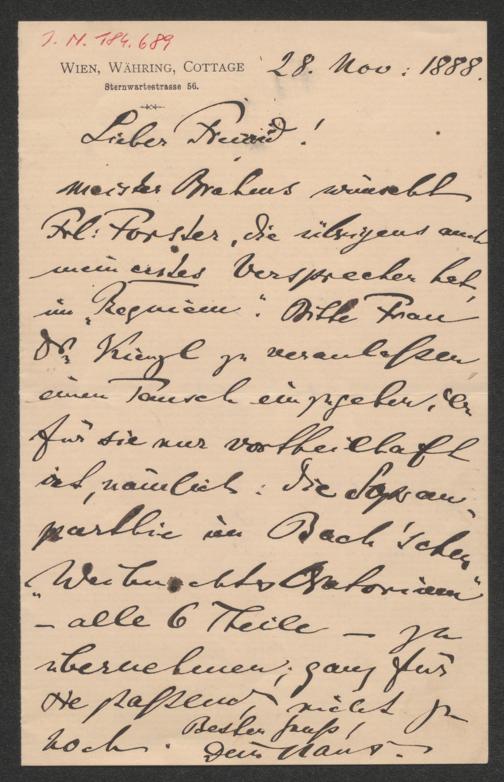 I. N. 184.689
WIEN, WÄHRING, COTTAGE
Sternwartestrasse 56.
28. Nov: 1888.
Lieber Freund!
Meister Brahms wünscht
Frl: Forster, die übrigens auch
mein erstes Versprechen hat,
im „Requiem“. Bitte Frau
Dr. Kienzl zu veranlaßen
einen Tausch einzugehen, der
für sie nur vortheilhaft
ist, nämlich: die Sopran-
parthie im Bach'schen
„Weihnachts Oratorium“
– alle 6 Theile – zu
übernehmen; ganz für
sie paßend, nicht zu
hoch. Bester Gruß!
Dein Hans.